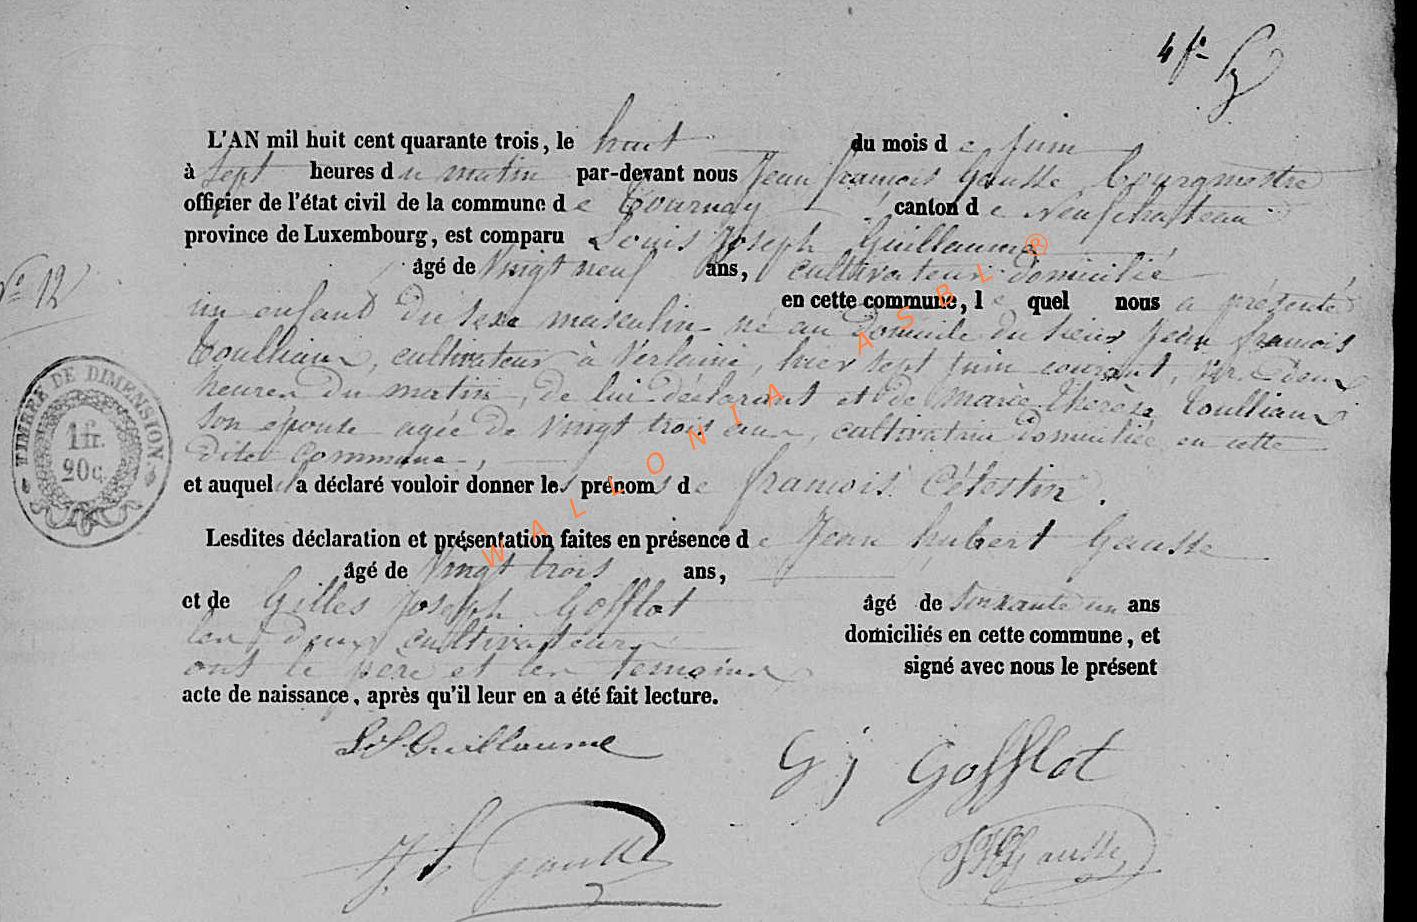 4 f.
L'AN mil huit cent quarante trois, le huit du mois de Juin
à Sept heures du matin par-devant nous Jean françois Gausse bourgmestre
officier de l'état civil de la commune de Tournay canton de Neufchateau
province de Luxembourg, est comparu Louis Joseph Guillaume
âgé de Vingt neuf ans, cultivateur domicilié
N° 12
en cette commune, le quel nous a présenté
un enfant du sexe masculin né au domicile du sieur Jean françois
Toulliaux, cultivateur à Verlaine, hier sept Juin courant à deux
heures du matin, de lui déclarant et de Marie Thérèse Toulliaux
son épouse agée de Vingt trois ans, cultivatrice domiciliée en cette
dite Commune,
et auquel il a déclaré vouloir donner les prénoms de françois Célestin.
Lesdites déclaration et présentation faites en présence de Jean hubert Gausse
âgé de Vingt trois ans,
et de Gilles Joseph Gofflot âgé de Soixante un ans
les deux cultivateurs domiciliés en cette commune, et
ont le père et les témoins signé avec nous le présent
acte de naissance, après qu'il leur en a été fait lecture.
TIMBRE DE DIMENSION
1 fr.
20 c.
LJ Guillaume
G j Gofflot
J f Gausse
JH Gausse
WALLONIA ASBL ®